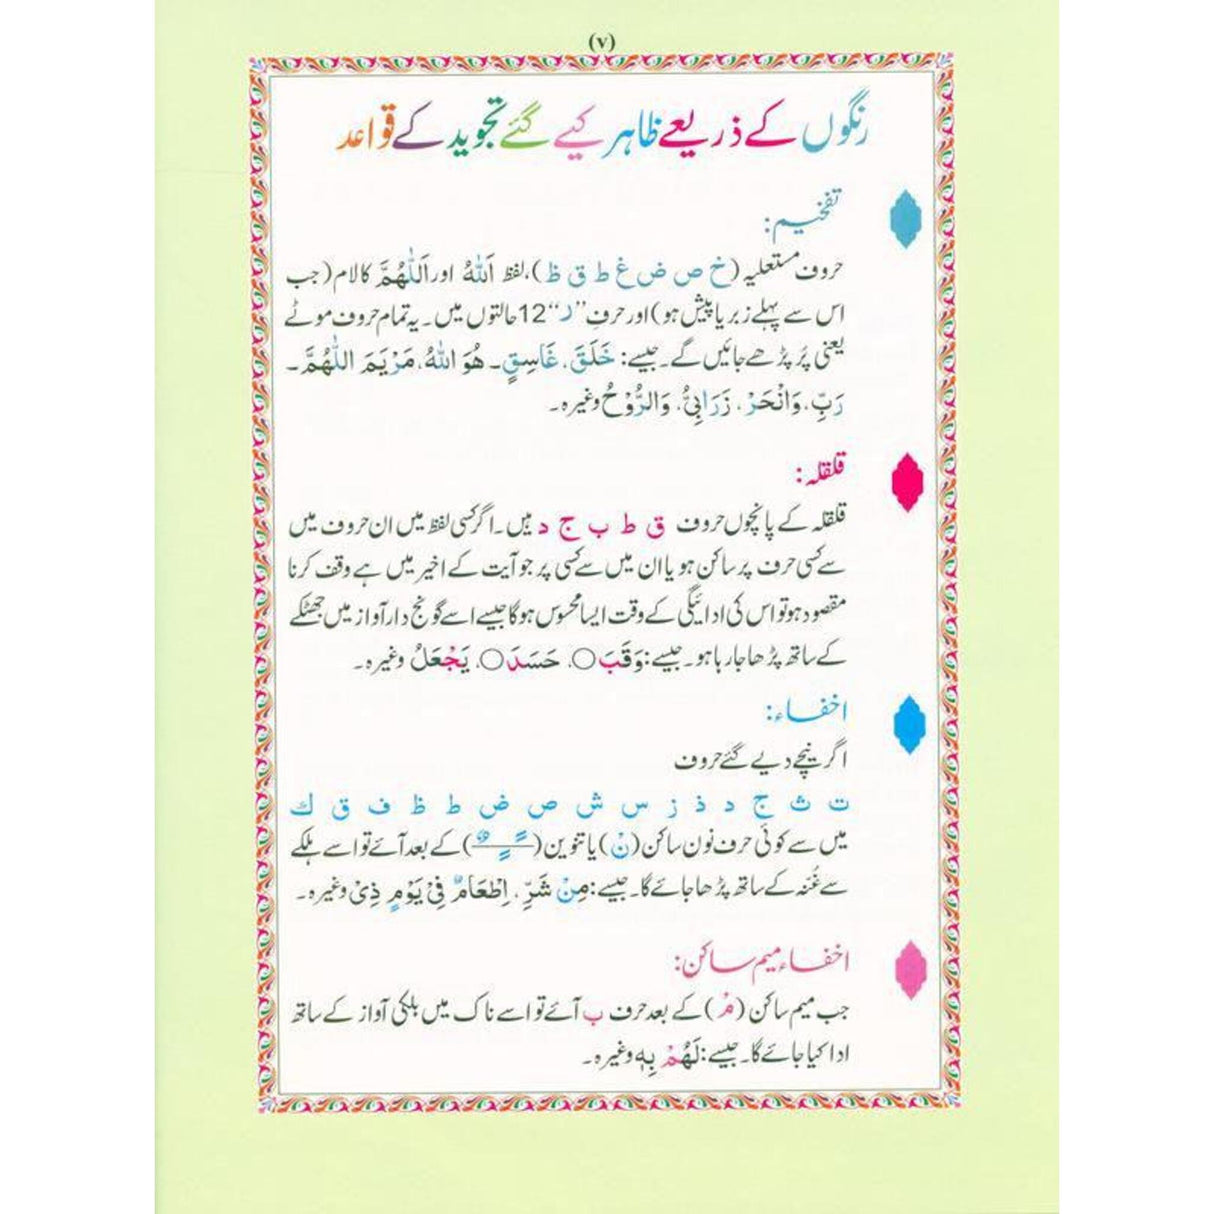 (v)
رنگوں کے ذریعے ظاہر کیے گئے تجوید کے قواعد
تفخیم:
حروف مستعلیہ (خ ص ض غ ط ق ظ)، لفظ اَللّٰهُ اور اَللّٰهُمَّ کا لام (جب
اس سے پہلے زبر یا پیش ہو) اور حرفِ ”ر“ 12 حالتوں میں۔ یہ تمام حروف موٹے
یعنی پُر پڑھے جائیں گے۔ جیسے: خَلَقَ، غَاسِقٍ۔ هُوَ اللّٰهُ، مَرْيَمَ اللّٰهُمَّ۔
رَبِّ، وَانْحَرْ، زَرَابِيُّ، وَالرُّوْحُ وغیرہ۔
قلقلہ:
قلقلہ کے پانچوں حروف ق ط ب ج د ہیں۔ اگر کسی لفظ میں ان حروف میں
سے کسی حرف پر ساکن ہو یا ان میں سے کسی پر جو آیت کے اخیر میں ہے وقف کرنا
مقصود ہو تو اس کی ادائیگی کے وقت ایسا محسوس ہوگا جیسے اسے گونج دار آواز میں جھٹکے
کے ساتھ پڑھا جا رہا ہو۔ جیسے: وَقَبَ○، حَسَدَ○، يَجْعَلُ وغیرہ۔
اخفاء:
اگر نیچے دیے گئے حروف
ت ث ج د ذ ز س ش ص ض ط ظ ف ق ك
میں سے کوئی حرف نون ساکن (نْ) یا تنوین (ـًـٍـٌ) کے بعد آئے تو اسے ہلکے
سے غُنہ کے ساتھ پڑھا جائے گا۔ جیسے: مِنْ شَرِّ، اِطْعَامٌ فِيْ يَوْمٍ ذِيْ وغیرہ۔
اخفاء میم ساکن:
جب میم ساکن (مْ) کے بعد حرف ب آئے تو اسے ناک میں ہلکی آواز کے ساتھ
ادا کیا جائے گا۔ جیسے: لَهُمْ بِهٖ وغیرہ۔